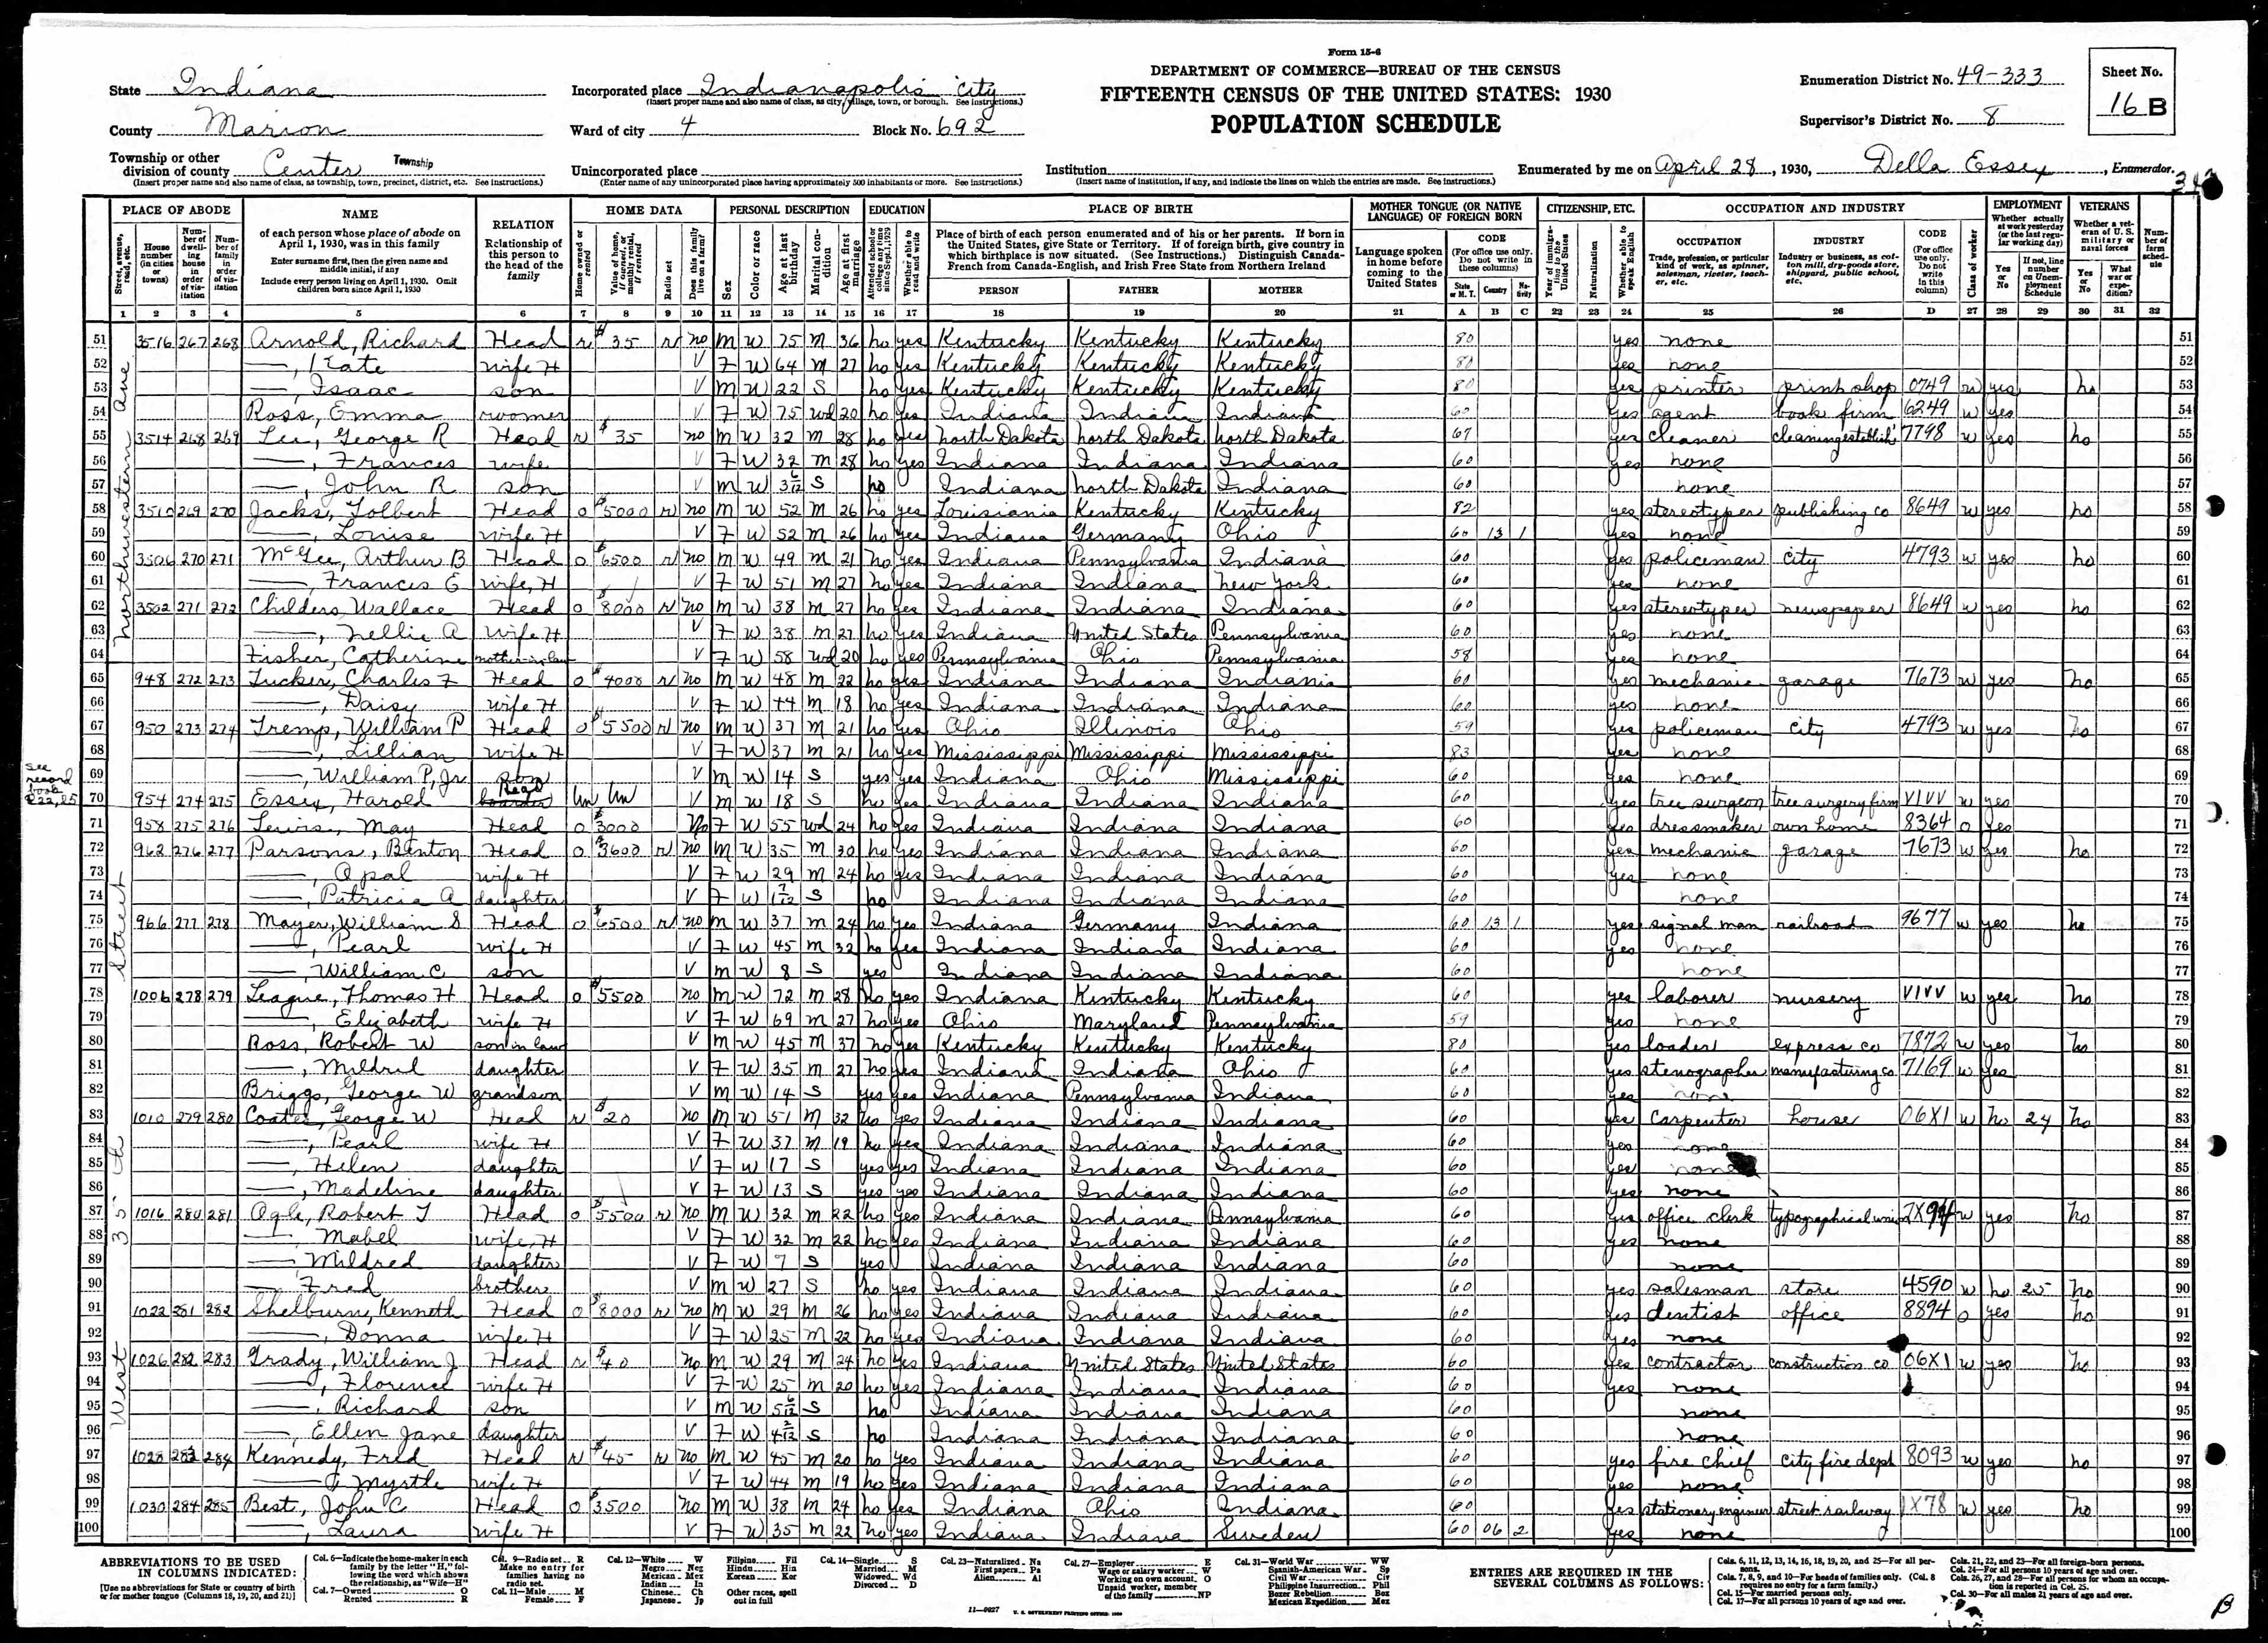 Form 15-6
DEPARTMENT OF COMMERCE—BUREAU OF THE CENSUS
FIFTEENTH CENSUS OF THE UNITED STATES: 1930
POPULATION SCHEDULE
State Indiana
County Marion
Township or other division of county Center Township
(Insert proper name and also name of class, as township, town, precinct, district, etc. See instructions.)
Incorporated place Indianapolis city
(Insert proper name and also name of class, as city, village, town, or borough. See instructions.)
Ward of city 4 Block No. 692
Unincorporated place
(Enter name of any unincorporated place having approximately 500 inhabitants or more. See instructions.)
Institution
(Insert name of institution, if any, and indicate the lines on which the entries are made. See instructions.)
Enumeration District No. 49-333
Supervisor's District No. 8
Sheet No. 16 B
Enumerated by me on April 28, 1930, Della Essex, Enumerator.
PLACE OF ABODE NAME RELATION HOME DATA PERSONAL DESCRIPTION EDUCATION PLACE OF BIRTH MOTHER TONGUE (OR NATIVE LANGUAGE) OF FOREIGN BORN CITIZENSHIP, ETC. OCCUPATION AND INDUSTRY EMPLOYMENT VETERANS
Northwestern Ave
51 3516 267 268 Arnold, Richard Head R $35 R no M W 75 M 36 no yes Kentucky Kentucky Kentucky 80 yes none 51
52 —, Kate wife H V F W 64 M 27 no yes Kentucky Kentucky Kentucky 80 yes none 52
53 —, Isaac son V M W 22 S no yes Kentucky Kentucky Kentucky 80 yes printer print shop 0749 W yes no 53
54 Ross, Emma roomer V F W 75 Wd 20 no yes Indiana Indiana Indiana 60 yes agent book firm 6249 W yes 54
55 3514 268 269 Lee, George R Head R $35 no M W 32 M 28 no yes North Dakota North Dakota North Dakota 67 yes cleaner 7798 W yes no 55
56 —, Frances wife V F W 32 M 28 no yes Indiana Indiana Indiana 60 yes none 56
57 —, John R son V M W 3 6/12 S no Indiana North Dakota Indiana 60 none 57
58 3510 269 270 Jacks, Tolbert Head O $5000 R no M W 52 M 26 no yes Louisiania Kentucky Kentucky 82 yes stereotyper publishing co 8649 W yes no 58
59 —, Louise wife H V F W 52 M 26 no yes Indiana Germany Ohio 60 13 1 yes none 59
60 3506 270 271 McGee, Arthur B Head O $6500 R no M W 49 M 21 no yes Indiana Pennsylvania Indiana 60 yes policeman city 4793 W yes no 60
61 —, Frances E wife H V F W 51 M 27 no yes Indiana Indiana New York 60 yes none 61
62 3502 271 272 Childers, Wallace Head O $8000 R no M W 38 M 27 no yes Indiana Indiana Indiana 60 yes stereotyper newspaper 8649 W yes no 62
63 —, Nellie A wife H V F W 38 M 27 no yes Indiana United States Pennsylvania 60 yes none 63
64 Fisher, Catherine mother-in-law V F W 58 Wd 20 no yes Pennsylvania Ohio Pennsylvania 58 yes none 64
West 35 th Street
65 948 272 273 Tucker, Charles F Head O $4000 R no M W 48 M 22 no yes Indiana Indiana Indiania 60 yes mechanic garage 7673 W yes no 65
66 —, Daisy wife H V F W 44 M 18 no yes Indiana Indiana Indiana 60 yes none 66
67 950 273 274 Tremp, William P Head O $5500 R no M W 37 M 21 no yes Ohio Illinois Ohio 59 yes policeman city 4793 W yes no 67
68 —, Lillian wife H V F W 37 M 21 no yes Mississippi Mississippi Mississippi 83 yes none 68
69 —, William P, Jr son V M W 14 S yes yes Indiana Ohio Mississippi 60 yes none 69
see record book
70 954 274 275 Essex, Harold Head Un Un V M W 18 S no yes Indiana Indiana Indiana 60 yes tree surgeon tree surgery firm VIVV W yes 70
71 958 275 276 Lewis, May Head O $3000 No F W 55 Wd 24 no yes Indiana Indiana Indiana 60 yes dressmaker own home 8364 O yes 71
72 962 276 277 Parsons, Benton Head O $3600 R no M W 35 M 30 no yes Indiana Indiana Indiana 60 yes mechanic garage 7673 W yes no 72
73 —, Opal wife H V F W 29 M 24 no yes Indiana Indiana Indiana 60 yes none 73
74 —, Patricia A daughter V F W 1 7/12 S no Indiana Indiana Indiana 60 none 74
75 966 277 278 Mayer, William S Head O $6500 R no M W 37 M 24 no yes Indiana Germany Indiana 60 13 1 yes signal man railroad 9677 W yes no 75
76 —, Pearl wife H V F W 45 M 32 no yes Indiana Indiana Indiana 60 yes none 76
77 —, William C son V M W 8 S yes Indiana Indiana Indiana 60 none 77
78 1006 278 279 League, Thomas H Head O $5500 no M W 72 M 28 no yes Indiana Kentucky Kentucky 60 yes laborer nursery VIVV W yes no 78
79 —, Elizabeth wife H V F W 69 M 27 no yes Ohio Maryland Pennsylvania 59 yes none 79
80 Ross, Robert W son in law V M W 45 M 37 no yes Kentucky Kentucky Kentucky 80 yes loader express co 7872 W yes no 80
81 —, Mildred daughter V F W 35 M 27 no yes Indiana Indiana Ohio 60 yes stenographer manufacturing co 7169 W yes 81
82 Briggs, George W grandson V M W 14 S yes yes Indiana Pennsylvania Indiana 60 yes none 82
83 1010 279 280 Coates, George W Head R $20 no M W 51 M 32 no yes Indiana Indiana Indiana 60 yes carpenter house 06X1 W no 24 no 83
84 —, Pearl wife H V F W 37 M 19 no yes Indiana Indiana Indiana 60 yes none 84
85 —, Helen daughter V F W 17 S yes yes Indiana Indiana Indiana 60 yes none 85
86 —, Madeline daughter V F W 13 S yes yes Indiana Indiana Indiana 60 yes none 86
87 1016 280 281 Ogle, Robert T Head O $5500 R no M W 32 M 22 no yes Indiana Indiana Pennsylvania 60 yes office clerk typographical union W yes no 87
88 —, Mabel wife H V F W 32 M 22 no yes Indiana Indiana Indiana 60 yes none 88
89 — Mildred daughter V F W 7 S yes Indiana Indiana Indiana 60 none 89
90 — Fred brother V M W 27 S no yes Indiana Indiana Indiana 60 yes salesman store 4590 W no 25 no 90
91 1022 281 282 Shelburn, Kenneth Head O $8000 R no M W 29 M 26 no yes Indiana Indiana Indiana 60 yes dentist office 8894 O yes no 91
92 —, Donna wife H V F W 25 M 22 no yes Indiana Indiana Indiana 60 yes none 92
93 1026 282 283 Grady, William J Head R $40 no M W 29 M 24 no yes Indiana United States United States 60 yes contractor construction co 06X1 W yes no 93
94 —, Florence wife H V F W 25 M 20 no yes Indiana Indiana Indiana 60 yes none 94
95 —, Richard son V M W 5 6/12 S no Indiana Indiana Indiana 60 none 95
96 —, Ellen Jane daughter V F W S no Indiana Indiana Indiana 60 none 96
97 1028 283 284 Kennedy, Fred Head R $45 R no M W 45 M 20 no yes Indiana Indiana Indiana 60 yes fire chief city fire dept 8093 W yes no 97
98 — Myrtle wife H V F W 44 M 19 no yes Indiana Indiana Indiana 60 yes none 98
99 1030 284 285 Best, John C Head O $3500 no M W 38 M 24 no yes Indiana Ohio Indiana 60 yes stationary engineer street railway 1X78 W yes no 99
100 —, Laura wife H V F W 35 M 22 no yes Indiana Indiana Sweden 60 06 2 yes none 100
ABBREVIATIONS TO BE USED IN COLUMNS INDICATED:
[Use no abbreviations for State or country of birth or for mother tongue (Columns 18, 19, 20, and 21)]
ENTRIES ARE REQUIRED IN THE SEVERAL COLUMNS AS FOLLOWS:
11—9027 U. S. GOVERNMENT PRINTING OFFICE: 1930